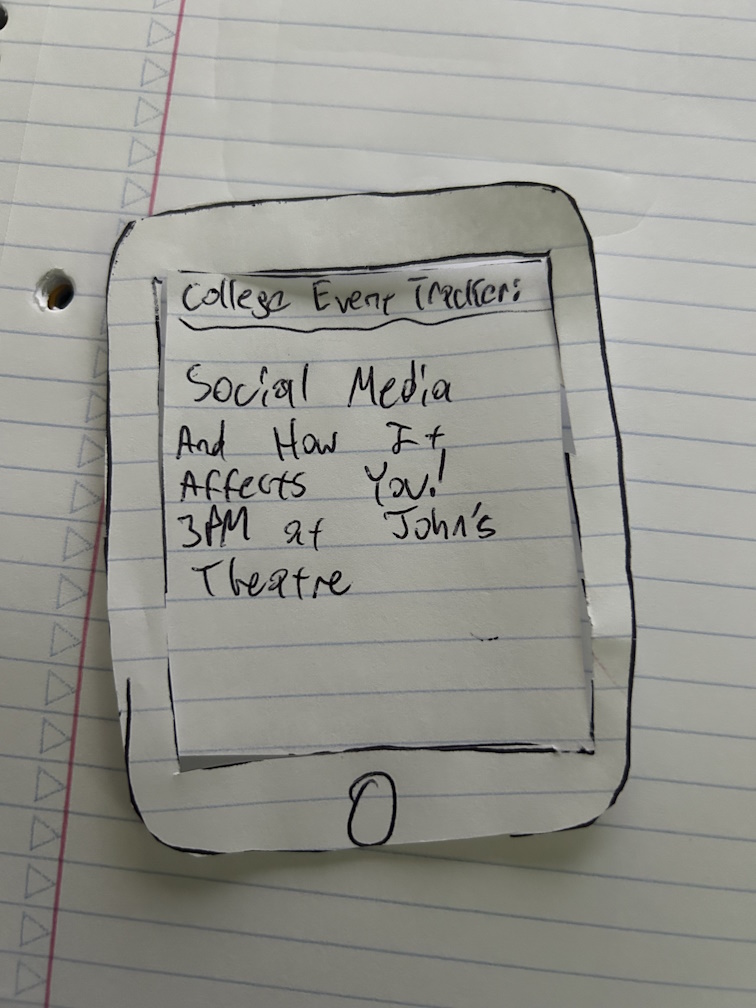 College Event Tracker:
Social Media
And How It
Affects You!
3PM at John's
Theatre